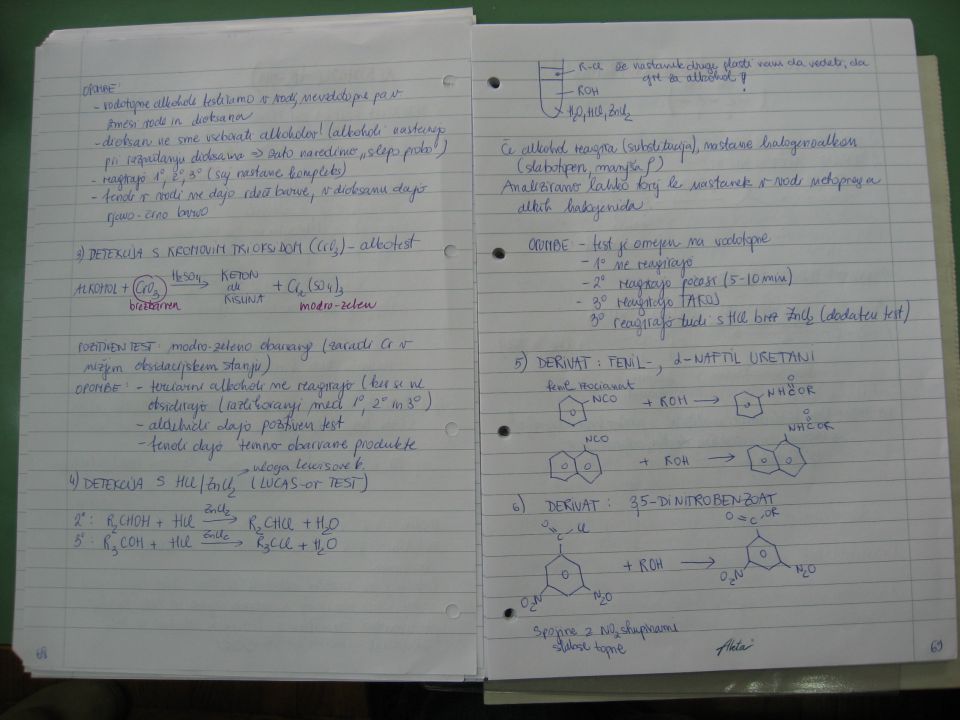 OPOMBE:
- vodotopne alkohole testiramo v vodi, nevodotopne pa v
zmesi vode in dioksana
- dioksan ne sme vsebovati alkoholov! (alkoholi nastanejo
pri razpadanju dioksana => zato naredimo "slepo probo")
- reagirajo 1°, 2°, 3° (saj nastane kompleks)
- fenoli v vodi ne dajo rdeče barve, v dioksanu dajo
rjavo-črno barvo
3) DETEKCIJA S KROMOVIM TRIOKSIDOM (CrO3) - alkotest
ALKOHOL + CrO3 H2SO4 → KETON ali KISLINA + Cr2(SO4)3
brezbarven modro-zelen
POZITIVEN TEST: modro-zeleno obarvanje (zaradi Cr v
nižjem oksidacijskem stanju)
OPOMBE: - terciarni alkoholi ne reagirajo (ker se ne
oksidirajo (razlikovanje med 1°, 2° in 3°)
- aldehidi dajo pozitiven test
- fenoli dajo temno obarvane produkte
vloga Lewisove k.
4) DETEKCIJA S HCl/ZnCl2 (LUCAS-ov TEST)
2°: R2CHOH + HCl ZnCl2 → R2CHCl + H2O
3°: R3COH + HCl ZnCl2 → R3CCl + H2O
68
R-Cl že nastanek druge plasti nam da vedeti, da
gre za alkohol!
ROH
H2O, HCl, ZnCl2
Če alkohol reagira (substitucija), nastane halogenoalkan
(slabotopen, manjša ρ)
Analiziramo lahko torej le nastanek v vodi netopnega
alkil halogenida
OPOMBE - test je omejen na vodotopne
- 1° ne reagirajo
- 2° reagirajo počasi (5-10 min)
- 3° reagirajo TAKOJ
3° reagirajo tudi s HCl brez ZnCl2 (dodaten test)
5) DERIVAT: FENIL-, α-NAFTIL URETANI
fenil izocianat
NCO + ROH → NHCOR
O
NCO + ROH → NHCOR
O
6) DERIVAT: 3,5-DINITROBENZOAT
O C Cl + ROH → O C OR
O2N N2O O2N N2O
Spojine z NO2 skupinami
slabše topne
69